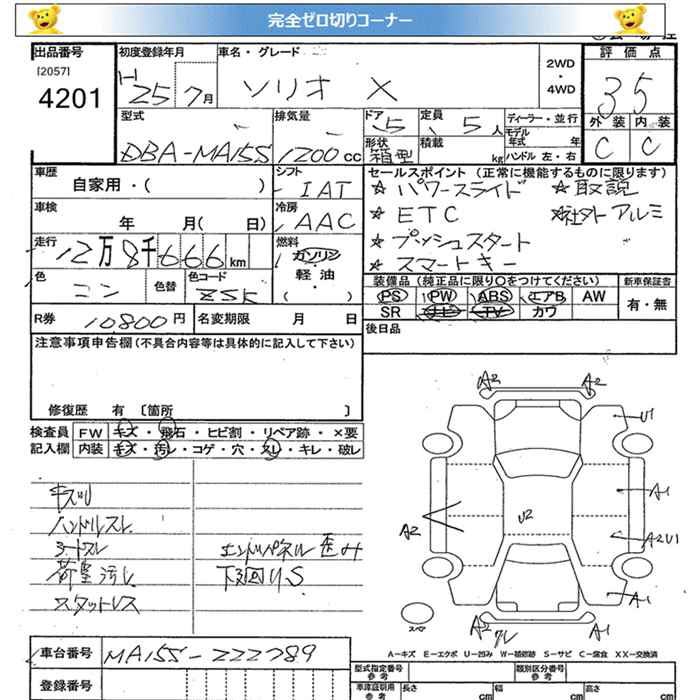 完全ゼロ切りコーナー
出品番号
[2057]
4201
初度登録年月
H 25 7月
車名・グレード
ソリオ X
2WD
・
4WD
評価点
3 5
外装 内装
C C
型式
DBA-MA15S
排気量
1200cc
ドア
5
定員
5人
形状
箱型
積載
kg
ディーラー・並行
モデル年式 年
ハンドル 左・右
車歴
自家用・( )
シフト
IAT
車検
年 月( 日)
冷房
AAC
走行
12万8千666km
燃料
ガソリン
軽油
( ・ )
色
コン
色替
色コード
ZSK
R券
10800円
名変期限 月 日
セールスポイント (正常に機能するものに限ります)
☆ パワースライド ☆ 取説
☆ ETC ☆社外アルミ
☆ プッシュスタート
☆ スマートキー
装備品 (純正品に限り○をつけてください)
PS PW ABS エアB AW
SR ナビ TV カワ
新車保証書
有・無
後日品
注意事項申告欄(不具合内容等は具体的に記入して下さい)
修復歴 有 〔箇所 〕
検査員
記入欄
FW キズ・飛石・ヒビ割・リペア跡・×要
内装 キズ・汚レ・コゲ・穴・スレ・キレ・破レ
キズ
ハンドルスレ
シートスレ
荷室汚レ
スタットレス
エンドパネル歪み
下廻りS
A2 A2
U1
A1
A2
U2
A2U1
A1
スペア
A2 ワレ A1
A-キズ E-エクボ U-凹み W-補修跡 S-サビ C-腐食 XX-交換済
車台番号
MA15S-222789
登録番号
型式指定番号
参考
類別区分番号
参考
車庫証明用
参考
長さ cm
幅 cm
高さ cm